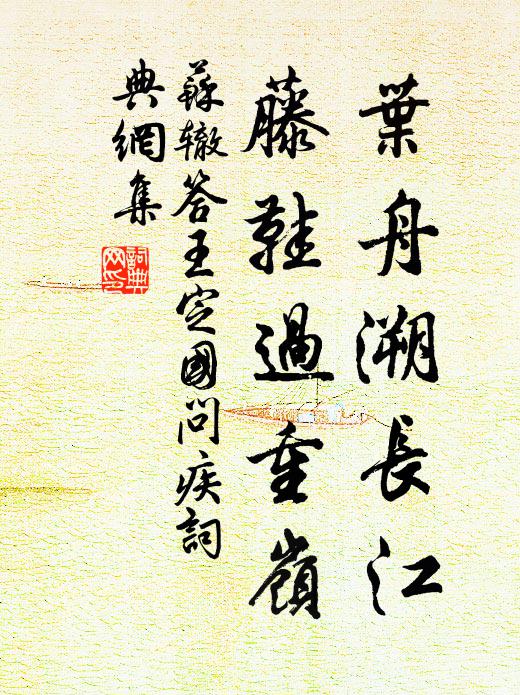 葉舟溯長江
藤鞋過重嶺
蘇辙答王定國問疾詞
典網集
詞典網印